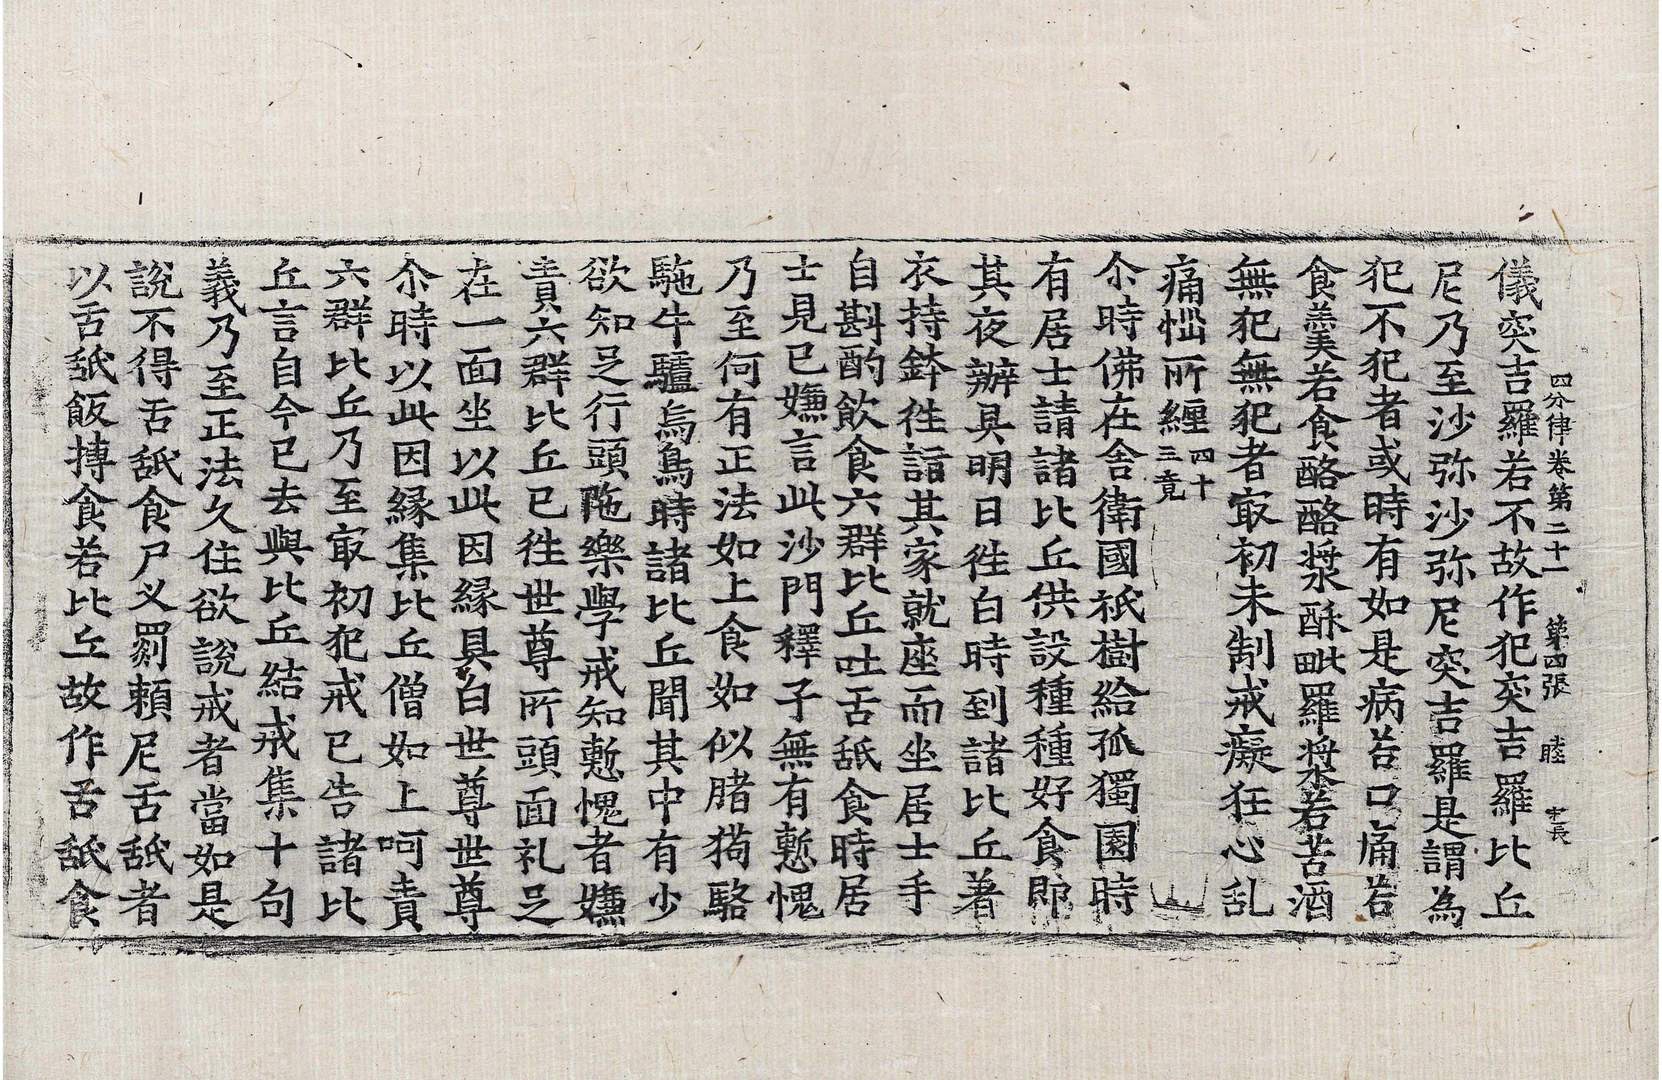 四分律卷第二十一 第四張 睦 宋長
儀突吉羅若不故作犯突吉羅比丘
尼乃至沙弥沙弥尼突吉羅是謂為
犯不犯者或時有如是病若口痛若
食羹若食酪酪漿酥毗羅漿若苦酒
無犯無犯者㝡初未制戒癡狂心乱
痛惱所纏四十三竟
尒時佛在舍衛國祇樹給孤獨園時
有居士請諸比丘供設種種好食即
其夜辦具明日徃白時到諸比丘著
衣持鉢徃詣其家就座而坐居士手
自斟酌飲食六群比丘吐舌舐食時居
士見已嫌言此沙門釋子無有慙愧
乃至何有正法如上食如似豬狗駱
駞牛驢烏鳥時諸比丘聞其中有少
欲知足行頭陁樂學戒知慙愧者嫌
責六群比丘已徃世尊所頭面礼足
在一面坐以此因緣具白世尊世尊
尒時以此因緣集比丘僧如上呵責
六群比丘乃至㝡初犯戒已告諸比
丘言自今已去與比丘結戒集十句
義乃至正法久住欲說戒者當如是
說不得舌舐食尸叉罽賴尼舌舐者
以舌舐飯摶食若比丘故作舌舐食